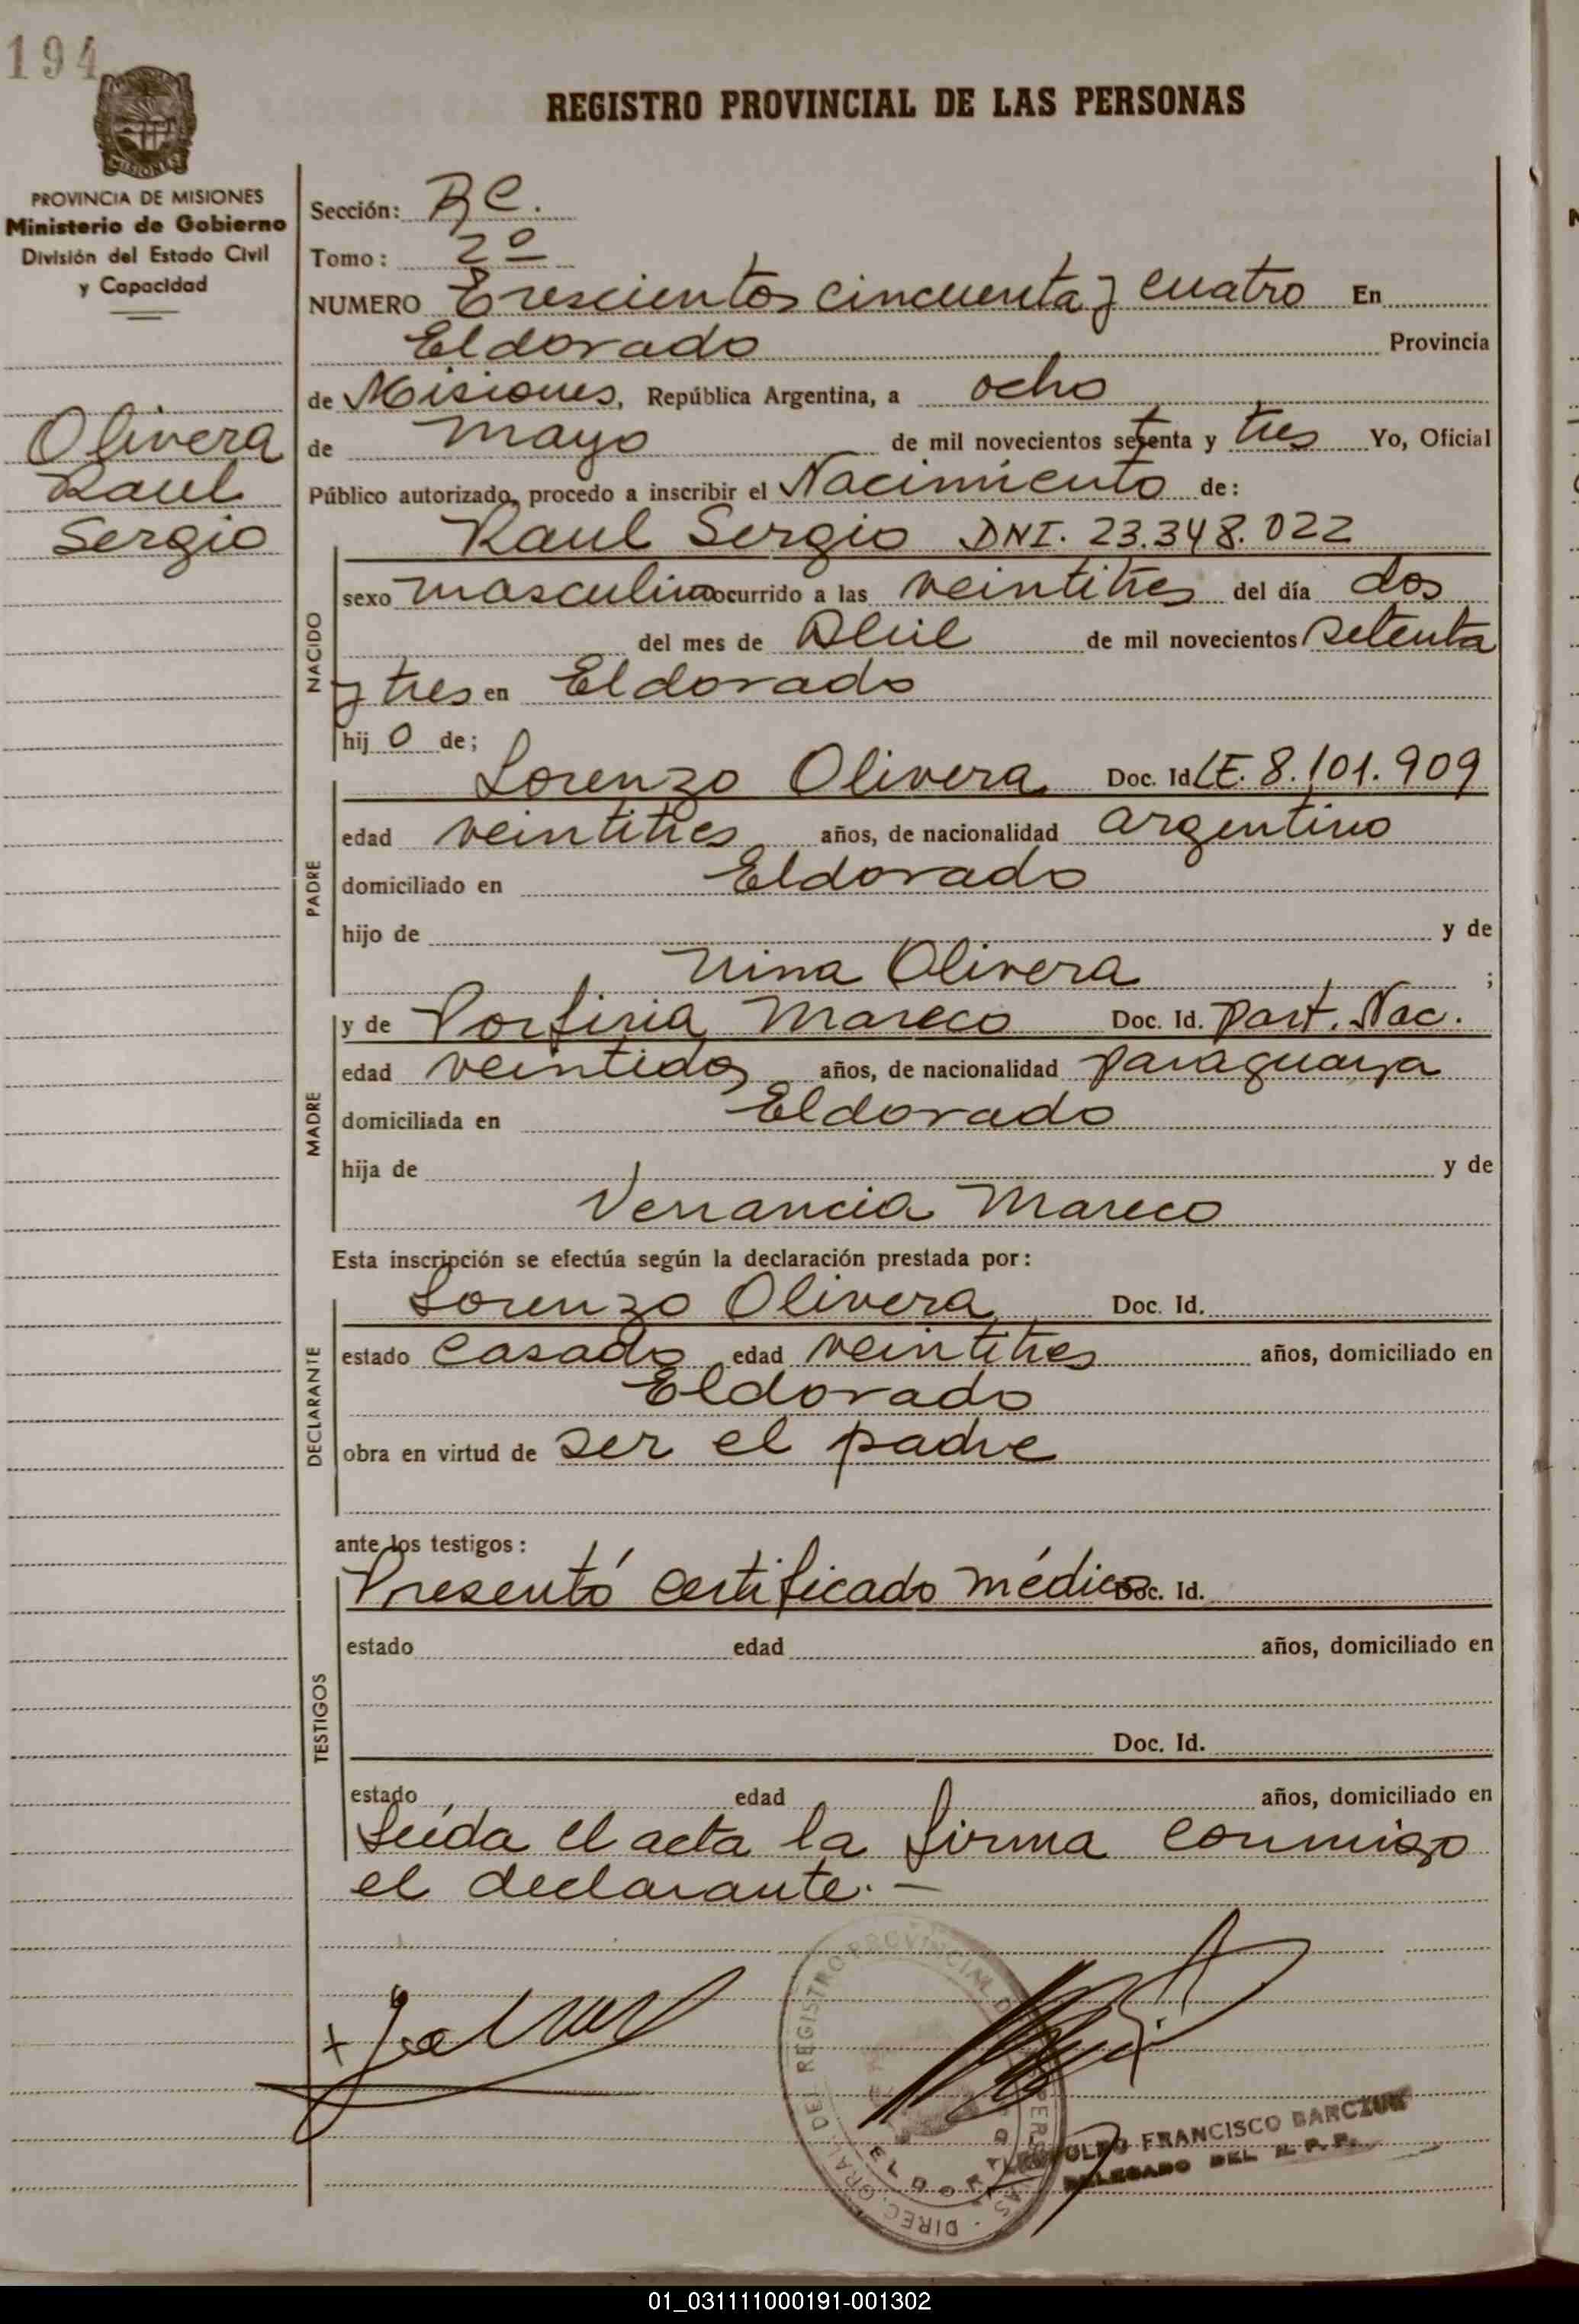 194
REGISTRO PROVINCIAL DE LAS PERSONAS
MISIONES
PROVINCIA DE MISIONES
Ministerio de Gobierno
División del Estado Civil
y Capacidad
Olivera
Raul
Sergio
Sección: RC.
Tomo: 2º
NUMERO Trescientos cincuenta y cuatro En
Eldorado Provincia
de Misiones, República Argentina, a ocho
de mayo de mil novecientos setenta y tres Yo, Oficial
Público autorizado, procedo a inscribir el Nacimiento de:
Raul Sergio DNI. 23.348.022
NACIDO
sexo masculino ocurrido a las veintitres del día dos
del mes de Abril de mil novecientos setenta
y tres en Eldorado
hij o de;
Lorenzo Olivera Doc. Id. LE. 8.101.909
PADRE
edad veintitres años, de nacionalidad argentino
domiciliado en Eldorado
hijo de y de
Nina Olivera ;
MADRE
y de Porfiria Mareco Doc. Id. Part. Nac.
edad veintidos años, de nacionalidad paraguaya
domiciliada en Eldorado
hija de y de
Venancia Mareco
Esta inscripción se efectúa según la declaración prestada por:
DECLARANTE
Lorenzo Olivera Doc. Id.
estado casado edad veintitres años, domiciliado en
Eldorado
obra en virtud de ser el padre
ante los testigos:
TESTIGOS
Presentó certificado médico Doc. Id.
estado edad años, domiciliado en
Doc. Id.
estado edad años, domiciliado en
Leída el acta la firma conmigo
el declarante.-
DIREC. GRAL. DEL REGISTRO PROVINCIAL DE LAS PERSONAS
ELDORADO
FRANCISCO BARCZUK
DELEGADO DEL R. P. P.
01_031111000191-001302